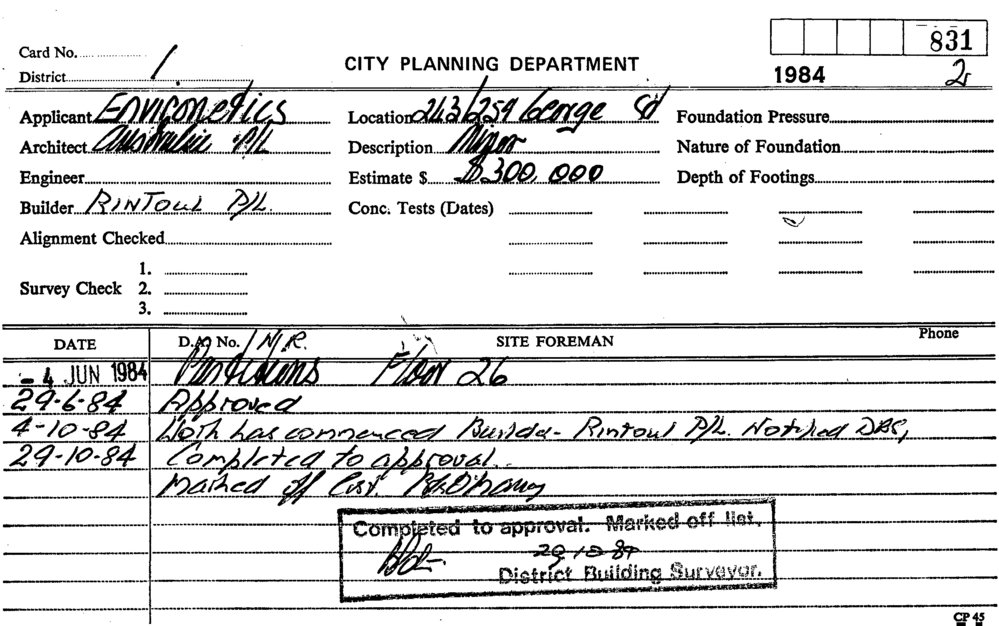 831
Card No.
1
CITY PLANNING DEPARTMENT
1984
2
District
Applicant Environetics
Location 243/259 George St
Foundation Pressure
Architect Australia P/L
Description Minor
Nature of Foundation
Engineer
Estimate $ $300,000
Depth of Footings
Builder RINTOUL P/L.
Conc. Tests (Dates)
Alignment Checked
1.
Survey Check 2.
3.
DATE D.A. No. / N.R. SITE FOREMAN Phone
- 4 JUN 1984 Partitions Floor 26
29-6-84 Approved
4-10-84 Work has commenced Builder - Rintoul P/L. Notified DBS,
29-10-84 Completed to approval.
Marked off List.
Completed to approval. Marked off list.
29-10-84
District Building Surveyor.
CP 45